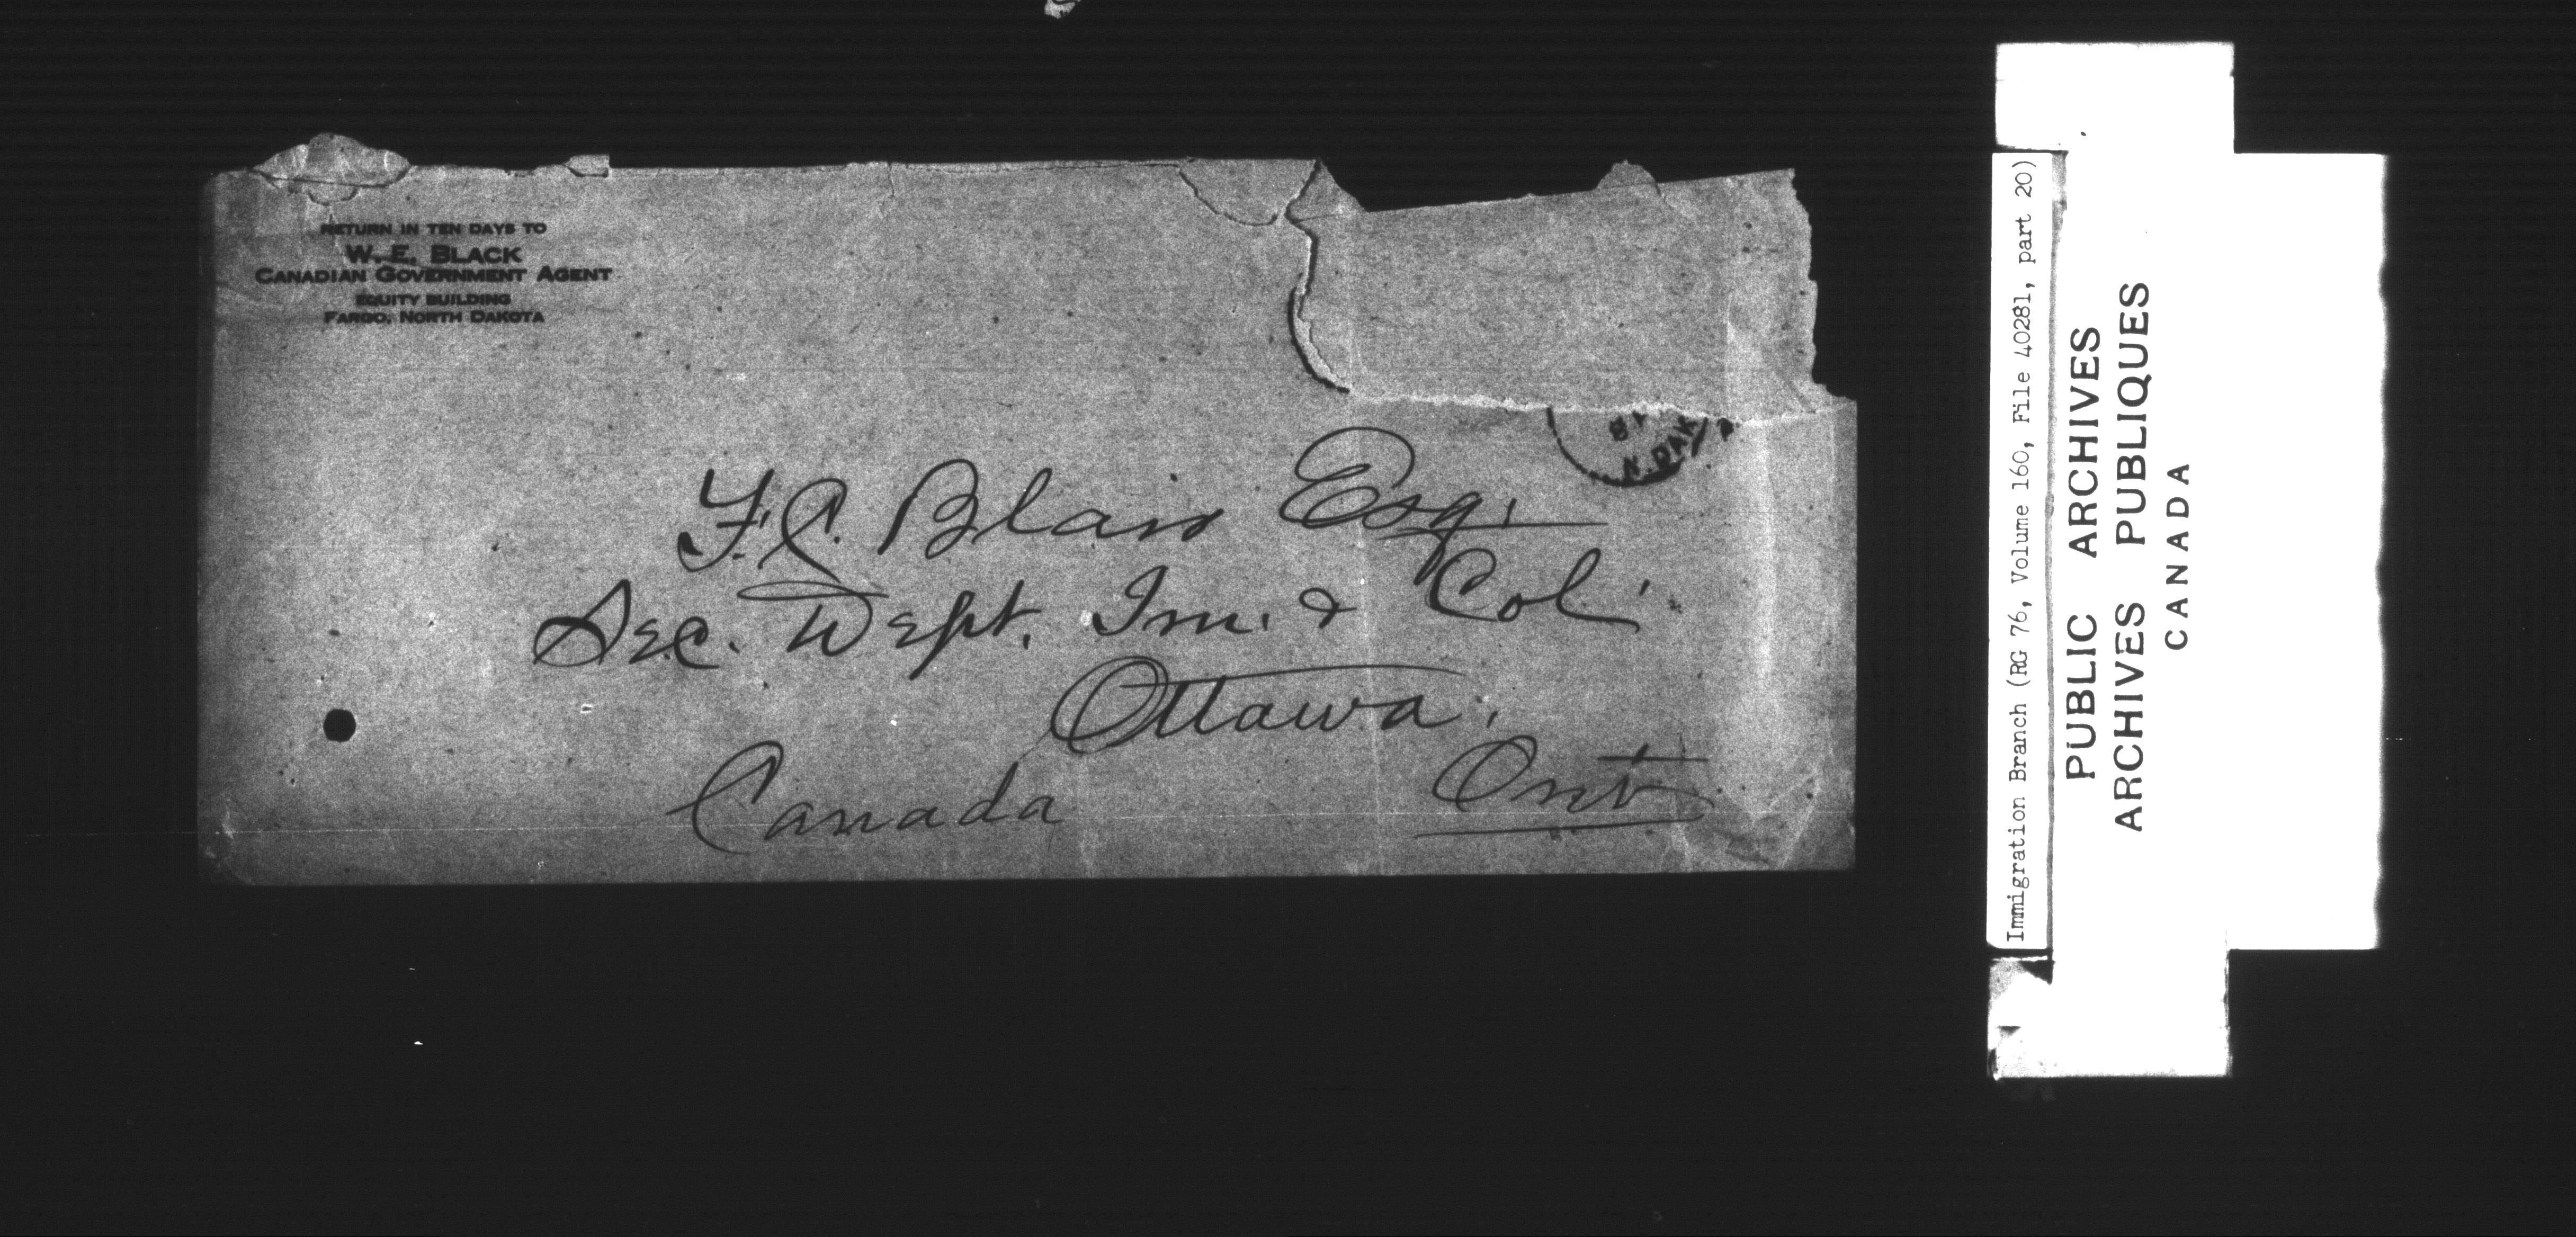 RETURN IN TEN DAYS TO
W. E. BLACK
CANADIAN GOVERNMENT AGENT
EQUITY BUILDING
FARGO, NORTH DAKOTA
N. DAK
F. C. Blair Esq.
Sec. Dept. Im. & Col.
Ottawa,
Ont
Canada
Immigration Branch (RG 76, Volume 160, File 40281, part 20)
PUBLIC ARCHIVES
ARCHIVES PUBLIQUES
CANADA